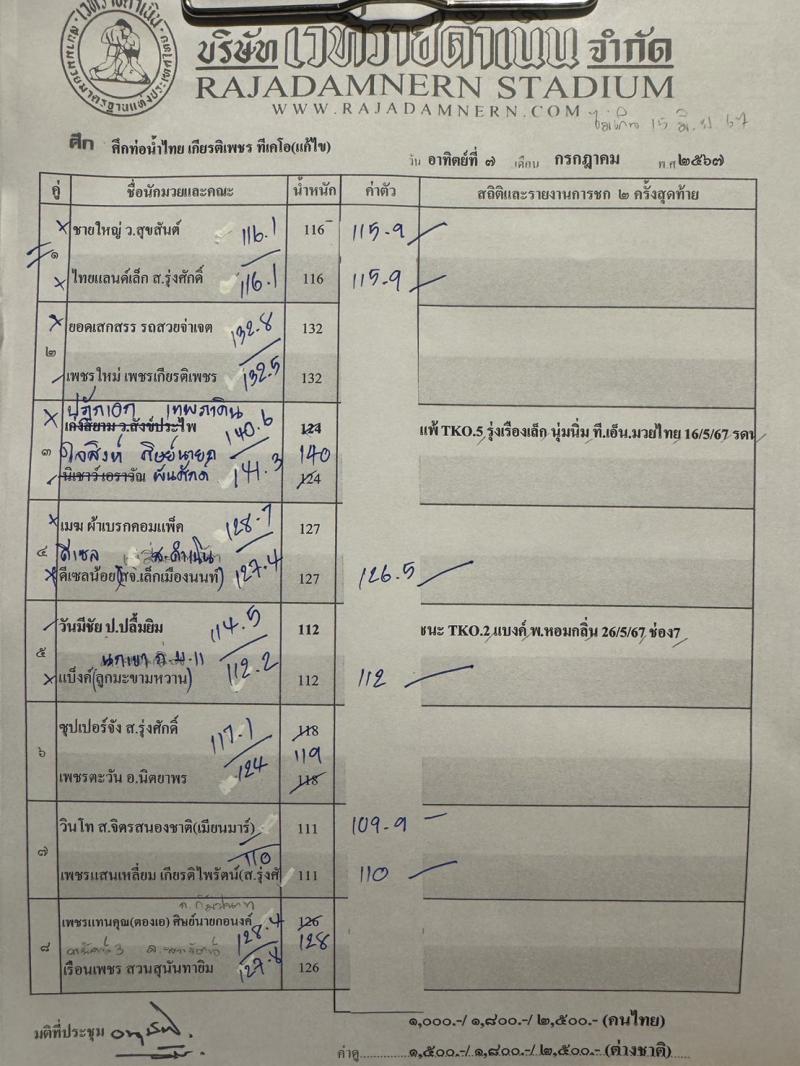 เวทีราชดำเนิน
บริษัท เวทีราชดำเนิน จำกัด
RAJADAMNERN STADIUM
WWW.RAJADAMNERN.COM
15 มิ.ย. 67
ศึก ศึกท่อน้ำไทย เกียรติเพชร ทีเคโอ(แก้ไข)
วัน อาทิตย์ที่ ๗ เดือน กรกฎาคม พ.ศ ๒๕๖๗
คู่ ชื่อนักมวยและคณะ น้ำหนัก ค่าตัว สถิติและรายงานการชก ๒ ครั้งสุดท้าย
ชายใหญ่ ว.สุขสันต์ 116.1 116 115.9
๑
ไทยแลนด์เล็ก ส.รุ่งศักดิ์ 116.1 116 115.9
ยอดเสกสรร รถสวยจ่าเจต 132.8 132
๒
เพชรใหม่ เพชรเกียรติเพชร 132.5 132
เทพภาดิน
เก่งสยาม ว.สังข์ประไพ 140.6 124 แพ้ TKO.5 รุ่งเรืองเล็ก นุ่มนิ่ม ที.เอ็น.มวยไทย 16/5/67
๓ ใจสิงห์ ศิษย์นายก 140
พันศักดิ์ 141.3 124
เมฆ ผ้าเบรกคอมแพ็ค 128.7 127
๔ ดีเซล
ดีเซลน้อย(สจ.เล็กเมืองนนท์) 127.4 127 126.5
วันมีชัย ป.ปลื้มยิม 114.5 112 ชนะ TKO.2 แบงค์ พ.หอมกลิ่น 26/5/67 ช่อง7
๕
แบ็งค์(ลูกมะขามหวาน) 112.2 112 112
ซุปเปอร์จัง ส.รุ่งศักดิ์ 117.1 118
๖ 119
เพชรตะวัน อ.นิตยาพร 124 118
วินโท ส.จิตรสนองชาติ(เมียนมาร์) 111 109.9
๗ 110
เพชรแสนเหลี่ยม เกียรติไพรัตน์(ส.รุ่งศั 111 110
เพชรแทนคุณ(ตองเอ) ศิษย์นายกอนงค์ 128.4 126
๘ 128
เรือนเพชร สวนสุนันทายิม 127.8 126
๑,๐๐๐.-/ ๑,๘๐๐-/ ๒,๕๐๐.- (คนไทย)
มติที่ประชุม
ค่าดู ๑,๕๐๐.-/ ๑,๘๐๐-/ ๒,๕๐๐.- (ต่างชาติ)